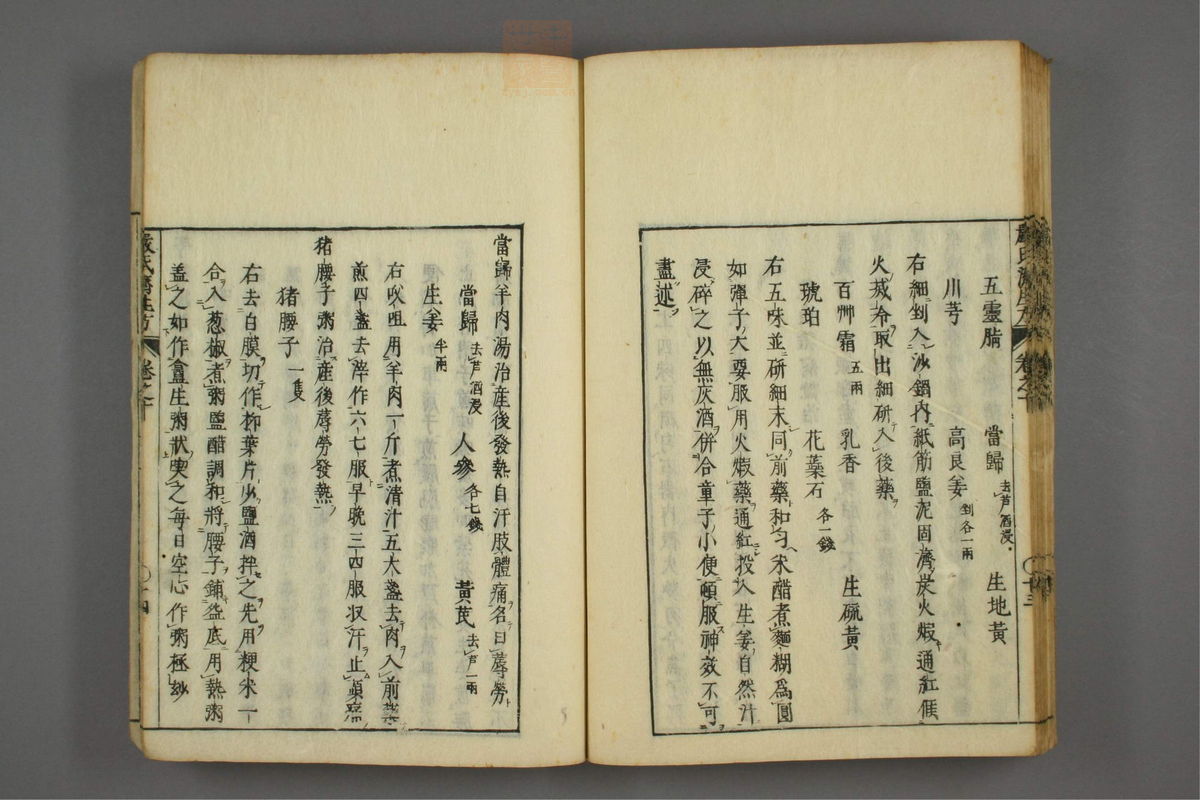 五靈脂 當歸去芦酒浸 生地黃
川芎 高良姜剉各一兩
右細剉入沙鍋內紙筋鹽泥固濟炭火煅通紅候
火城冷取出細研入後藥
百艸霜五兩 乳香 生硫黃
琥珀 花蘂石各一錢
右五味並研細末同前藥和勻米醋煮麵糊爲圓
如彈子大要服用火煅藥通紅投入生姜自然汁
浸碎之以無灰酒併合童子小便頓服神效不可
盡述
嚴氏濟生方 卷之十 十三
當歸羊肉湯治産後發熱自汗肢體痛名曰蓐勞
當歸去芦酒浸 人參各七錢 黃芪去芦一兩
生姜半兩
右㕮咀用羊肉一斤煮清汁五大盞去肉入前藥
煎四盞去滓作六七服早晚三四服收汗止煩
猪腰子粥治産後蓐勞發熱
猪腰子一隻
右去白膜切作柳葉片少鹽酒拌之先用粳米一
合入葱椒煮粥鹽醋調和將腰子鋪盆底用熱粥
盖之如作盦生粥狀喫之每日空心作粥極妙
嚴氏濟生方 卷之十 十四